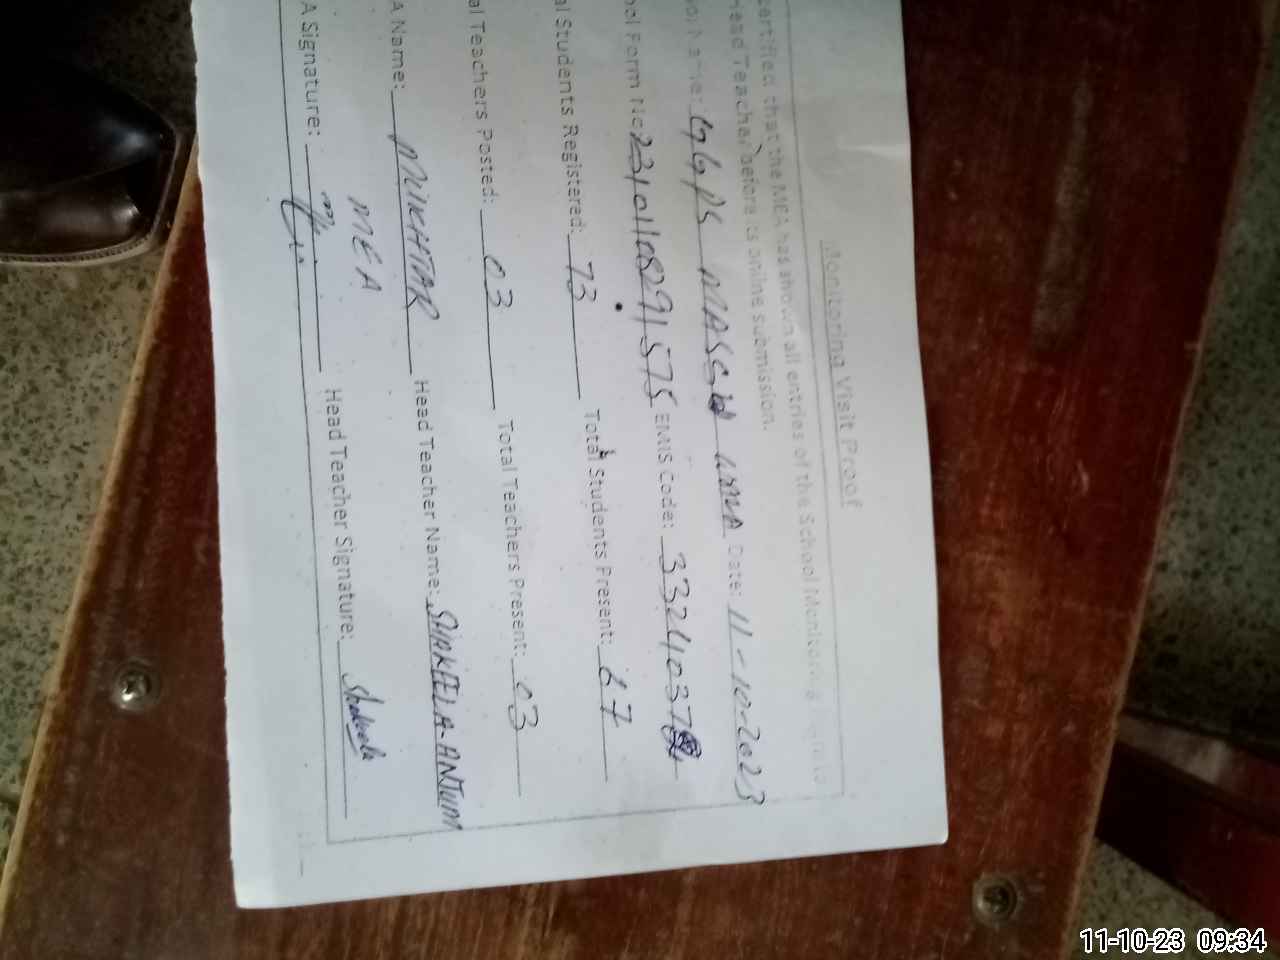 Monitoring Visit Proof
certified that the MEA has shown all entries of the School Monitoring
Head Teacher before its online submission.
ool Name: GGPS MASCH Date: 11-10-2023
ool Form No 23101108291575 EMIS Code: 3324037
al Students Registered: 73 Total Students Present: 67
al Teachers Posted: 03 Total Teachers Present: 03
A Name: MUKHTAR Head Teacher Name: SHAKEELA-ANJUM
MEA
A Signature: Head Teacher Signature: Shakeela
11-10-23 09:34